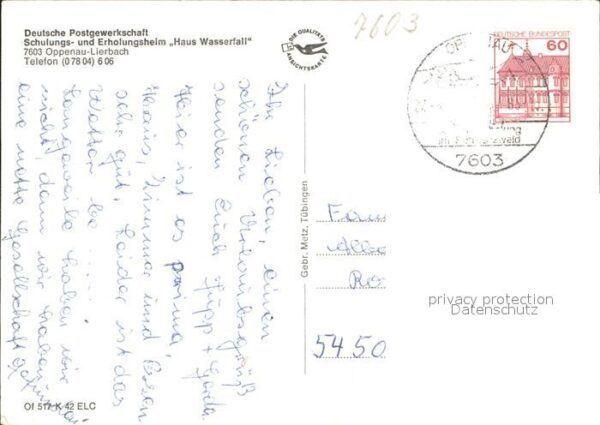 Deutsche Postgewerkschaft
Schulungs- und Erholungsheim „Haus Wasserfall"
7603 Oppenau-Lierbach
Telefon (0 78 04) 6 06
DIE QUALITÄTS
ANSICHTSKARTE
7603
DEUTSCHE BUNDESPOST
60
OPPENAU
7603
Ihr Lieben, einen
schönen Urlaubsgruß
senden Euch Jupp + Gerda
Hier ist es prima,
Haus, Zimmer und Essen
sehr gut. Leider ist das
Wetter be.....
Langeweile haben wir
nicht, denn wir haben
eine nette Gesellschaft
Gebr. Metz, Tübingen
Fam
Albe
Ro
5450
privacy protection
Datenschutz
Of 517 K 42 ELC